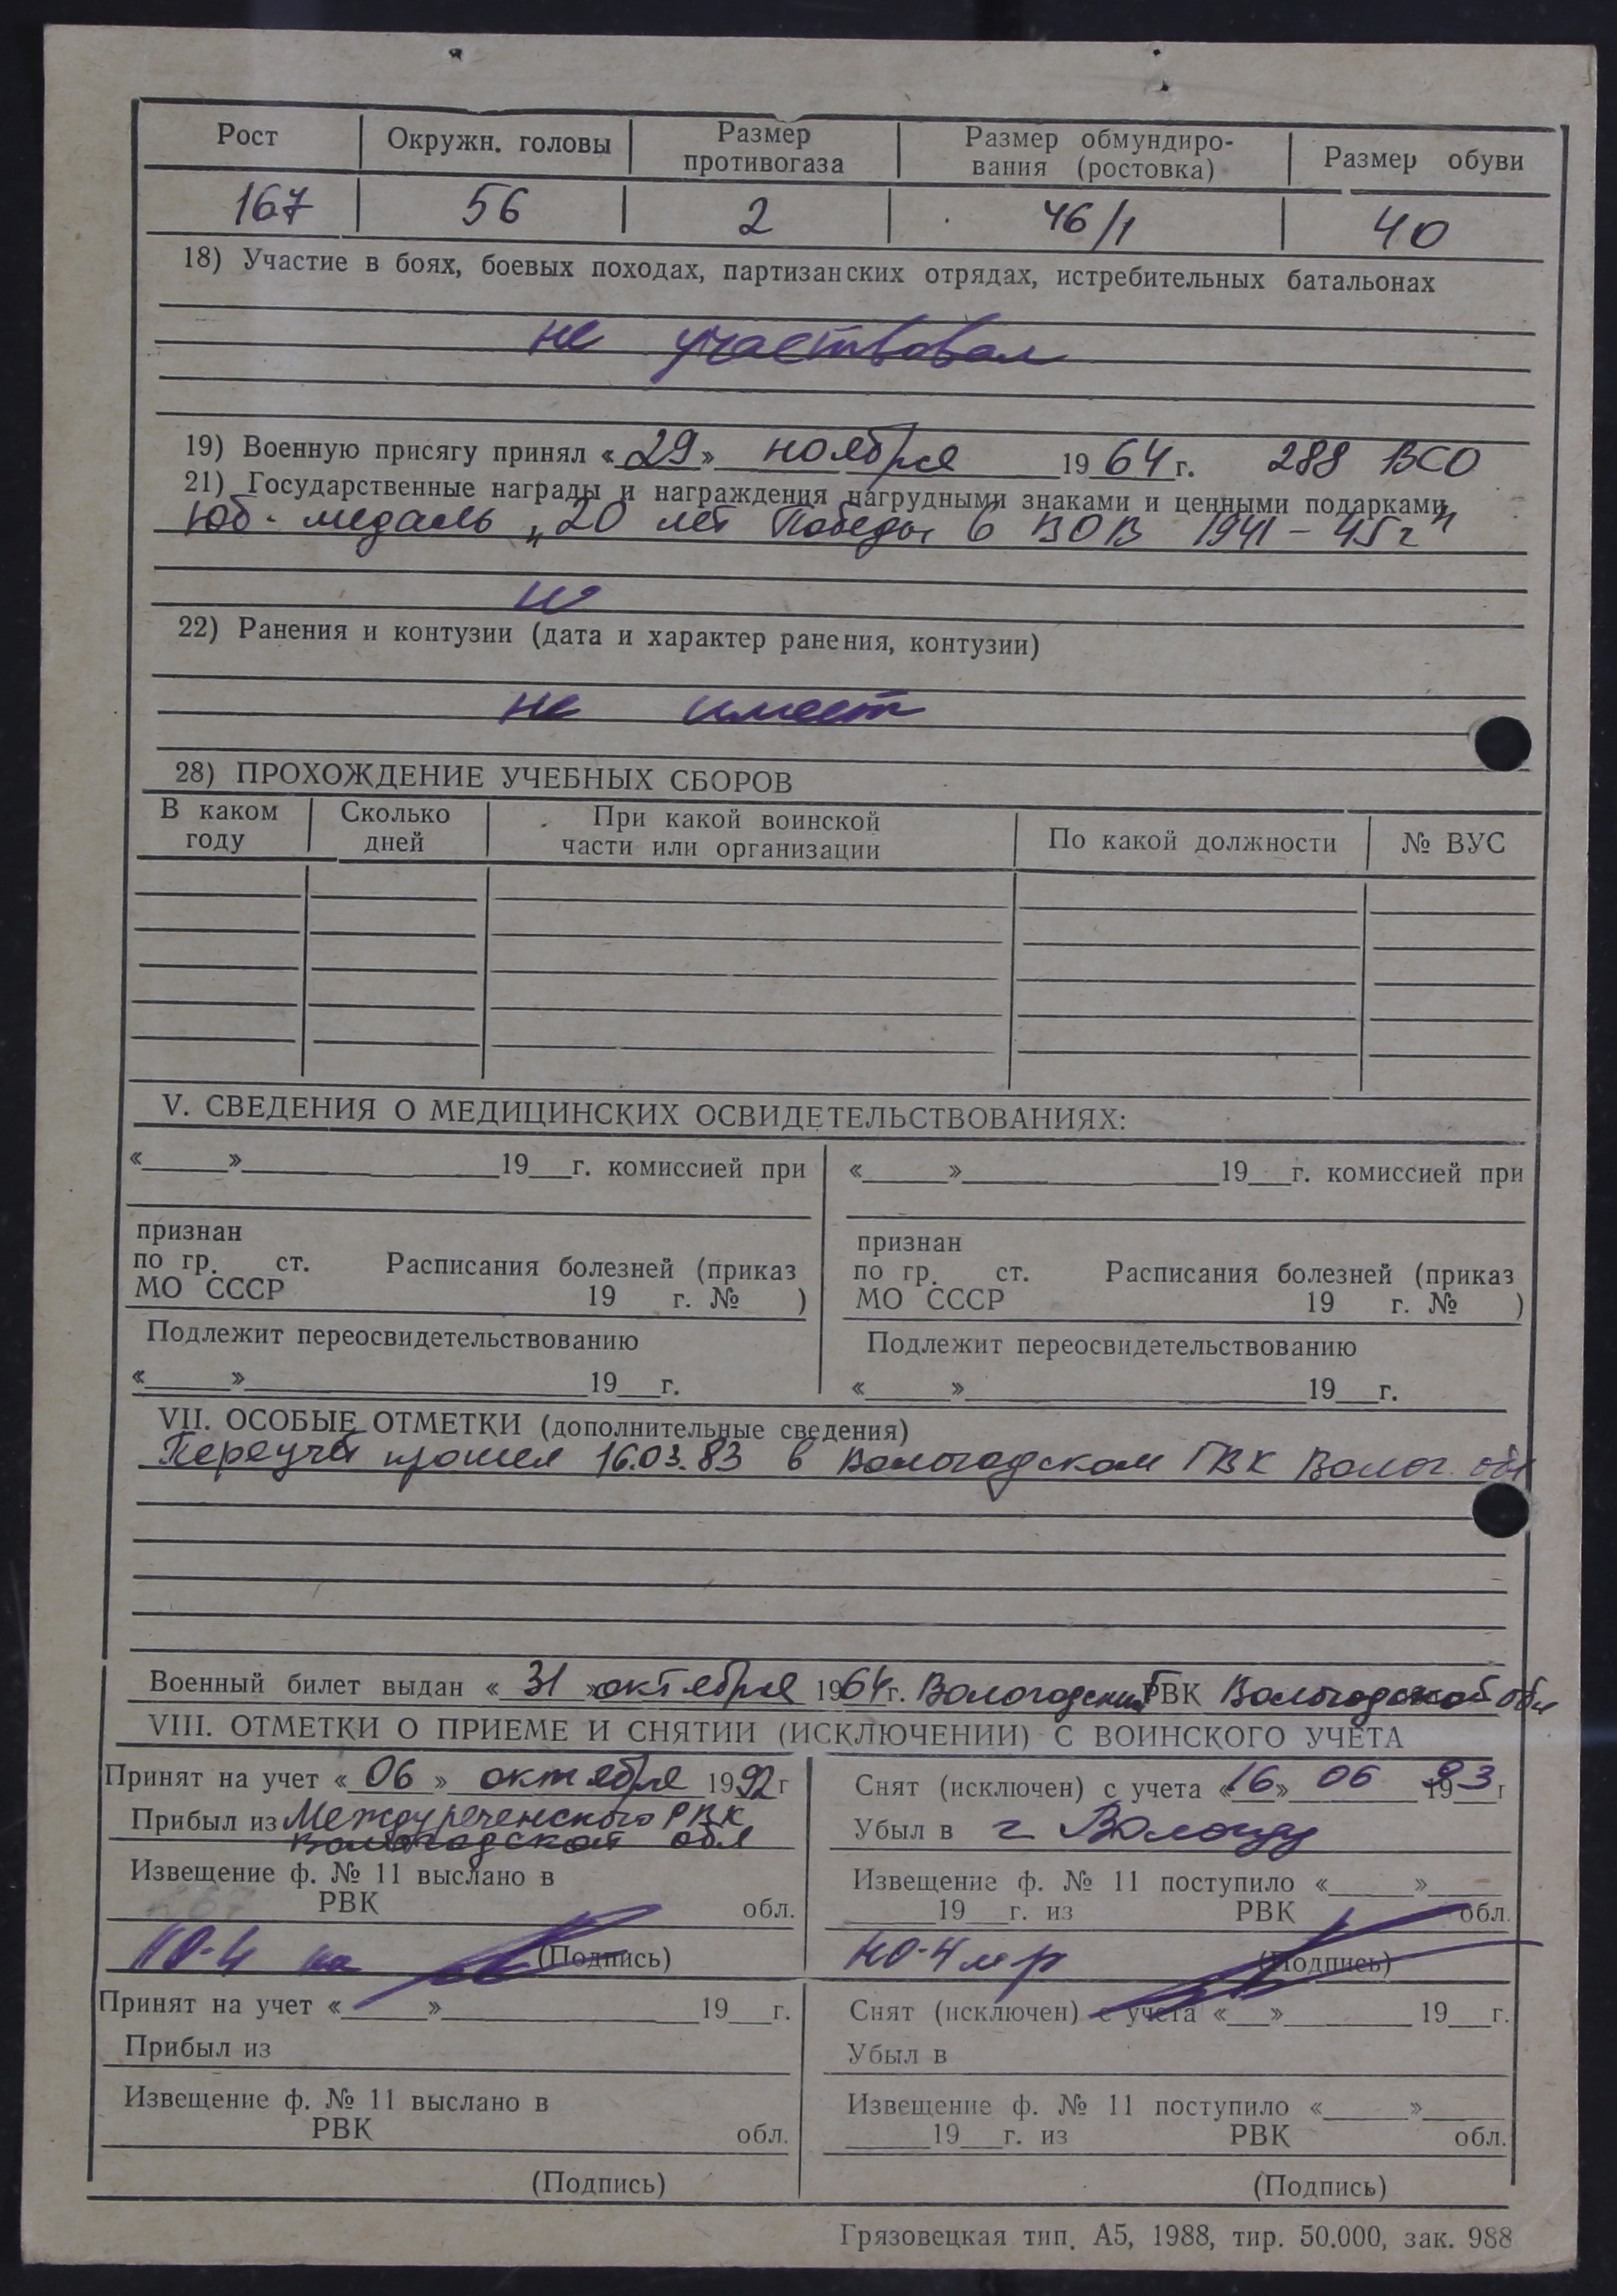 Рост Окружн. головы Размер противогаза Размер обмундиро- вания (ростовка) Размер обуви
167 56 2 46/1 40
18) Участие в боях, боевых походах, партизанских отрядах, истребительных батальонах
не участвовал
19) Военную присягу принял «29» ноября 1964 г. 288 ВСО
21) Государственные награды и награждения нагрудными знаками и ценными подарками
Юб. медаль „20 лет Победы в ВОВ 1941 – 45 г"
22) Ранения и контузии (дата и характер ранения, контузии)
не имеет
28) ПРОХОЖДЕНИЕ УЧЕБНЫХ СБОРОВ
В каком году Сколько дней При какой воинской части или организации По какой должности № ВУС
V. СВЕДЕНИЯ О МЕДИЦИНСКИХ ОСВИДЕТЕЛЬСТВОВАНИЯХ:
«____»____________19__г. комиссией при «____»____________19__г. комиссией при
признан признан
по гр. ст. Расписания болезней (приказ по гр. ст. Расписания болезней (приказ
МО СССР 19 г. № ) МО СССР 19 г. № )
Подлежит переосвидетельствованию Подлежит переосвидетельствованию
«____»________________19__г. «____»________________19__г.
VII. ОСОБЫЕ ОТМЕТКИ (дополнительные сведения)
Переучёт прошел 16.03.83 в Вологодском ГВК Волог. обл
Военный билет выдан «31» октября 1964 г. Вологодским ГВК Вологодской обл
VIII. ОТМЕТКИ О ПРИЕМЕ И СНЯТИИ (ИСКЛЮЧЕНИИ) С ВОИНСКОГО УЧЕТА
Принят на учет «06» октября 1992 г Снят (исключен) с учета «16» 06 1993 г
Прибыл из Междуреченского РВК Убыл в г. Вологду
Вологодской обл
Извещение ф. № 11 выслано в Извещение ф. № 11 поступило «____»____
РВК обл. ____19__г. из РВК обл.
(Подпись) (Подпись)
Принят на учет «____»____________19__г. Снят (исключен) с учета «__»______ 19__г.
Прибыл из Убыл в
Извещение ф. № 11 выслано в Извещение ф. № 11 поступило «____»____
РВК обл. ____19__г. из РВК обл.
(Подпись) (Подпись)
Грязовецкая тип. А5, 1988, тир. 50.000, зак. 988